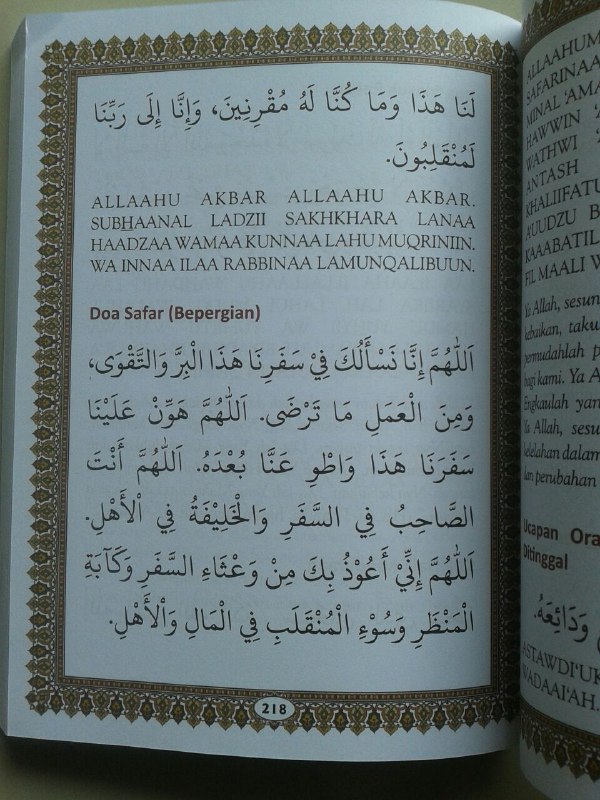 لَنَا هَذَا وَمَا كُنَّا لَهُ مُقْرِنِينَ، وَإِنَّا إِلَى رَبِّنَا
لَمُنْقَلِبُونَ.
ALLAAHU AKBAR ALLAAHU AKBAR.
SUBHAANAL LADZII SAKHKHARA LANAA
HAADZAA WAMAA KUNNAA LAHU MUQRINIIN.
WA INNAA ILAA RABBINAA LAMUNQALIBUUN.
Doa Safar (Bepergian)
اَللّٰهُمَّ إِنَّا نَسْأَلُكَ فِيْ سَفَرِنَا هَذَا الْبِرَّ وَالتَّقْوَى،
وَمِنَ الْعَمَلِ مَا تَرْضَى. اَللّٰهُمَّ هَوِّنْ عَلَيْنَا
سَفَرَنَا هَذَا وَاطْوِ عَنَّا بُعْدَهُ. اَللّٰهُمَّ أَنْتَ
الصَّاحِبُ فِي السَّفَرِ وَالْخَلِيْفَةُ فِي اْلأَهْلِ.
اَللّٰهُمَّ إِنِّيْ أَعُوْذُ بِكَ مِنْ وَعْثَاءِ السَّفَرِ وَكَآبَةِ
الْمَنْظَرِ وَسُوْءِ الْمُنْقَلَبِ فِي الْمَالِ وَاْلأَهْلِ.
218
ALLAAHUM
SAFARINAA
MINAL 'AMA
HAWWIN
WATHWI
ANTASH
KHALIIFATU
A'UUDZU B
KAAABATIL
FIL MAALI W
Ya Allah, sesun
kebaikan, takw
permudahlah p
bagi kami. Ya A
Engkaulah yan
Ya Allah, sesu
kelelahan dalam
dan perubahan
Ucapan Ora
Ditinggal
وَدَائِعَهُ.
ASTAWDI'UK
WADAAI'AH.